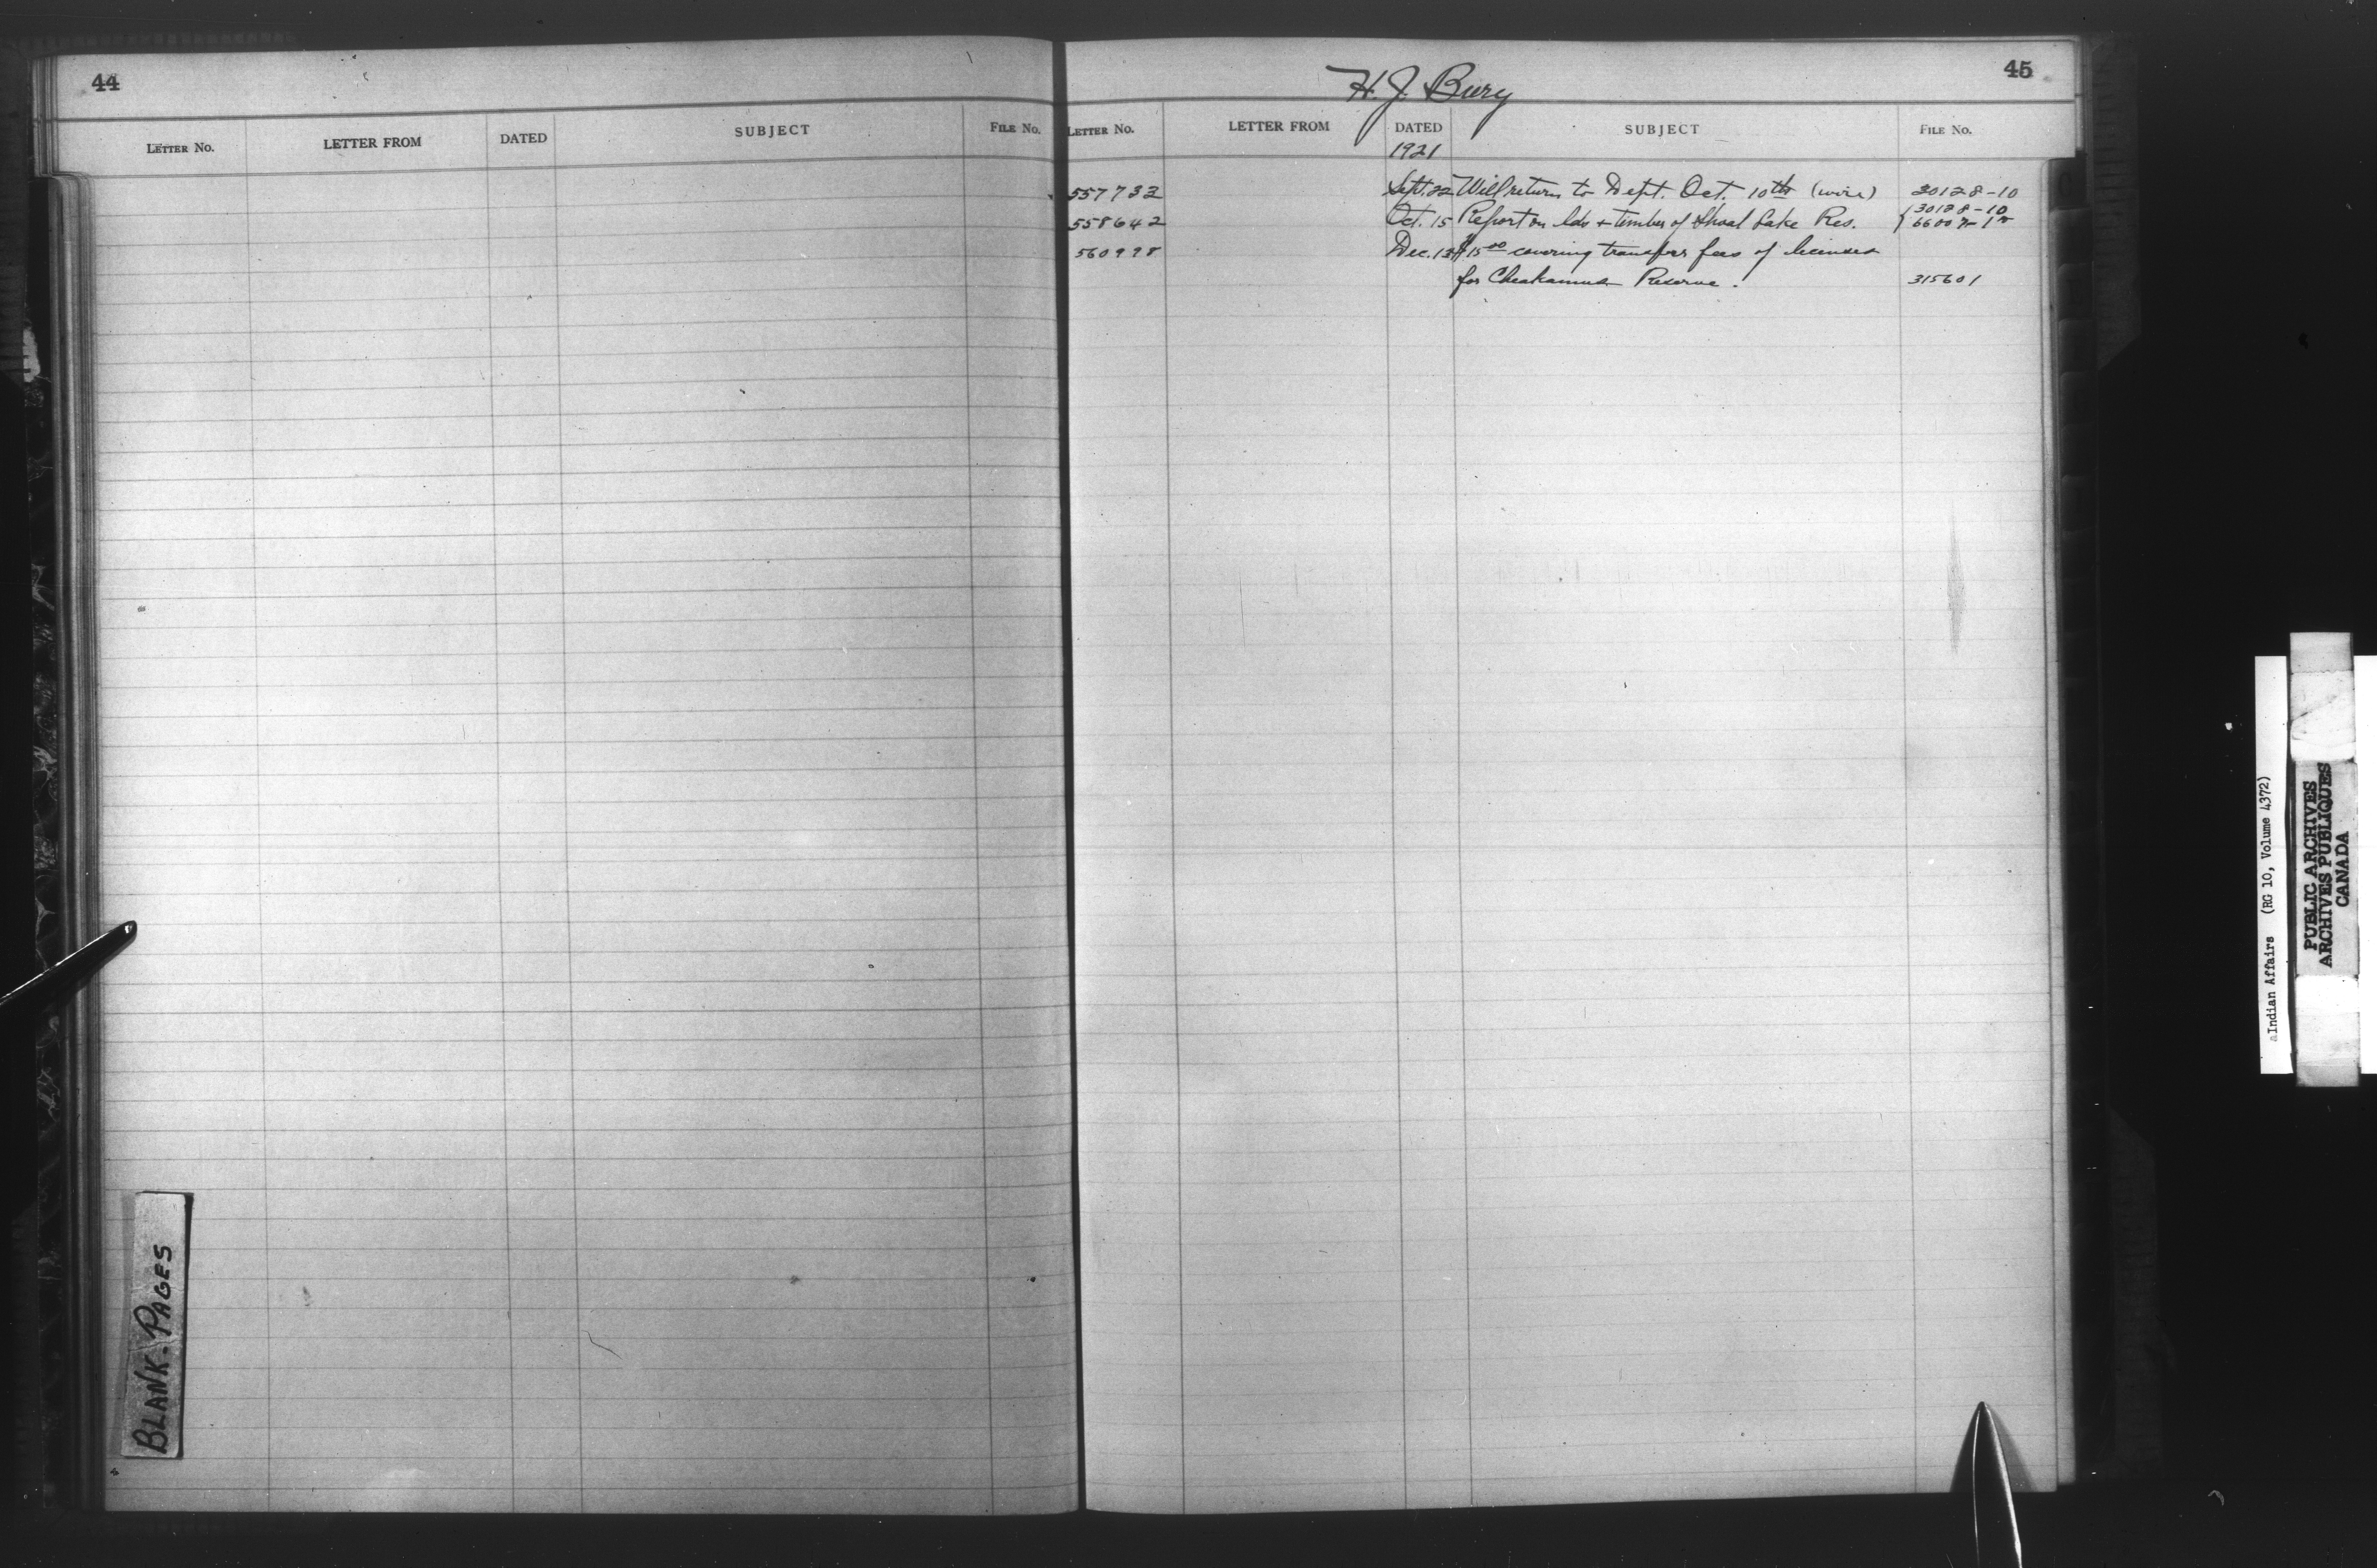 44
LETTER No. LETTER FROM DATED SUBJECT FILE No.
BLANK-PAGES
H. J. Bury
45
LETTER No. LETTER FROM DATED SUBJECT FILE No.
1921
557732 Sept. 22 Will return to Dept. Oct. 10th (wire) 30128-10
558642 Oct. 15 Report on lds + timber of Shoal Lake Res. { 30128-10
66007-1
560998 Dec. 13 $15.00 covering transfer fees of licenses
for Cheakamus Reserve. 315601
Indian Affairs (RG 10, Volume 4372)
PUBLIC ARCHIVES
ARCHIVES PUBLIQUES
CANADA